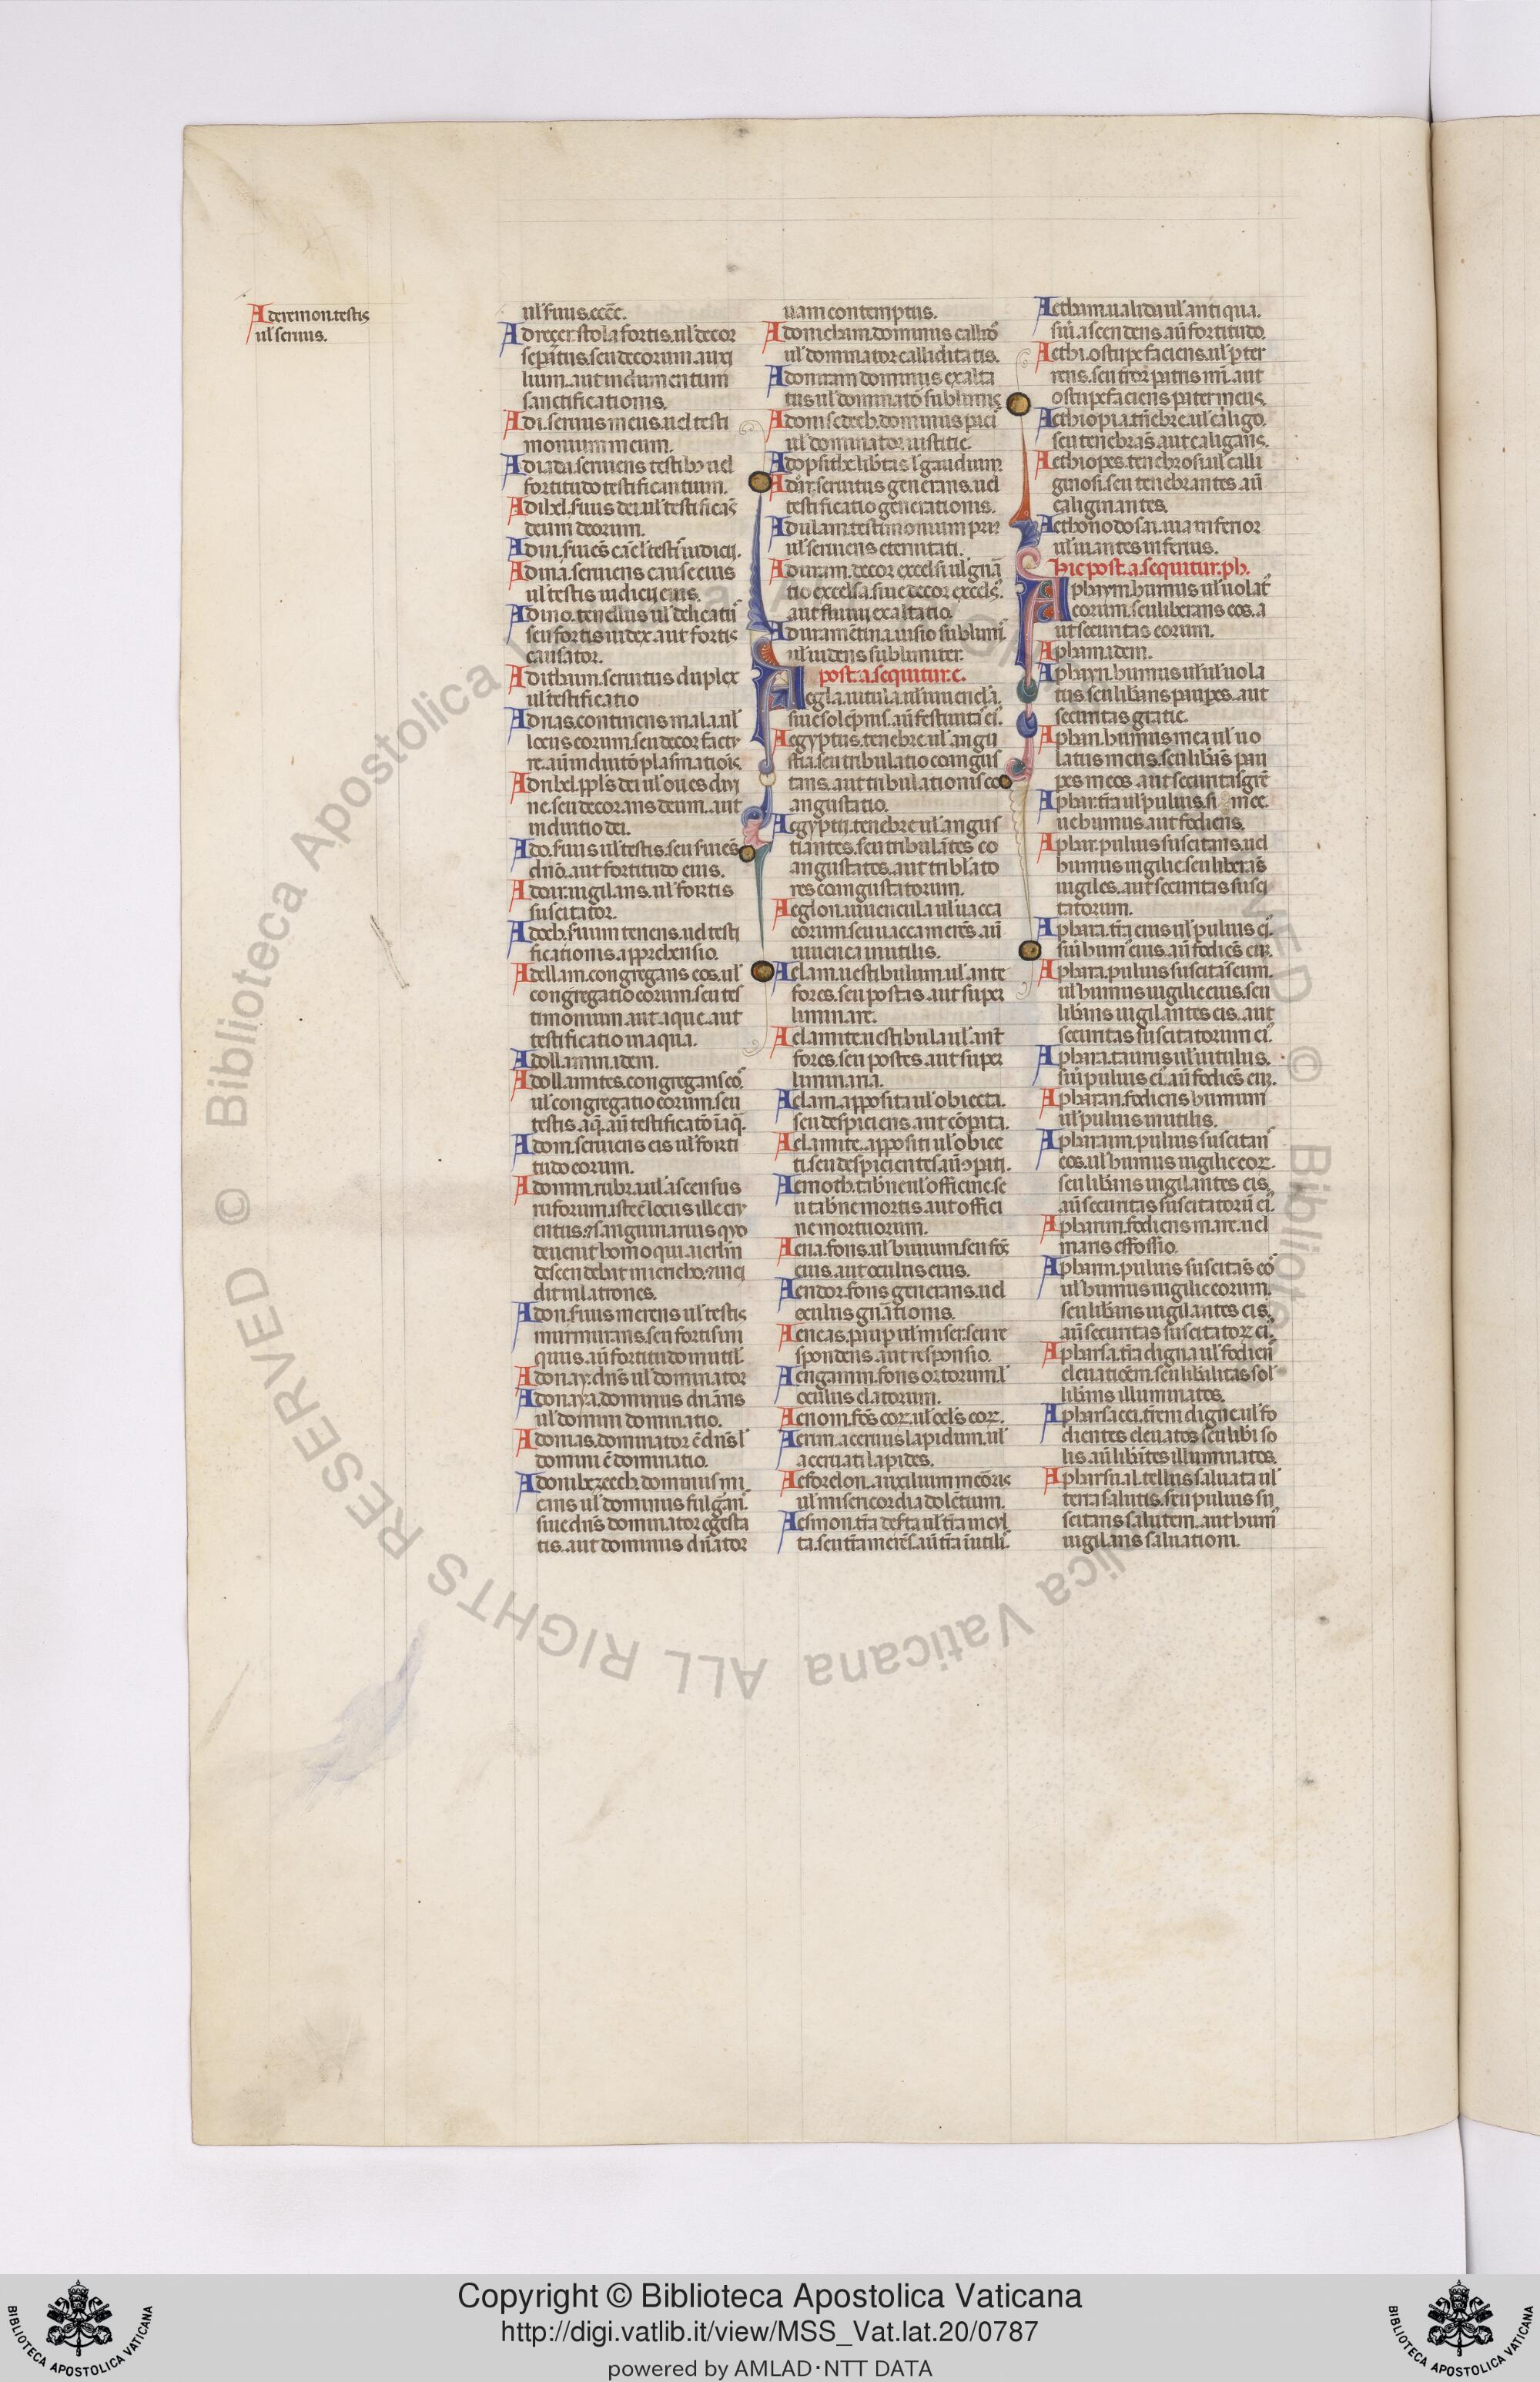 Aderemon. testis
ul' seruus.
ul' suus. ecc̄e.
Adreçer. stola fortis. ul' decor
sep̄atus. seu decorum. auxi
lium. aut indumentum
sanctificationis.
Adi. seruus meus. uel testi
monium meum.
Adiada. seruiens testib3 uel
fortitudo testificantium.
Adihel. suus dei. ul' testificās
deum deorum.
ul' testis iudicij eius.
Adino. tenellus ul' delicati
seu fortis iudex. aut fortis
causator.
Adithaim. seruitus duplex
ul' testificatio
Adrias. continens mala. ul'
locus eorum. seu decor factu
induitio dei.
dn̄o. aut fortitudo eius.
Adoir. uigilans. ul' fortis
suscitator.
ficationis. apprehensio.
Adellam. congregans eos. ul'
congregatio eorum. seu tes
timonium. aut aque. aut
testificatio in aqua.
Adollamin. idem.
Adollamites. congregans eo.
ul' congregatio eorum. seu
Adom. seruiens eis ul' forti
tudo eorum.
Adomin. rubra. ul' ascensus
ruforum. iste ē locus ille cry
entus. 7 sanguinarius quo
deuenit homo qui a ierlm
descendebat in iericho. 7 inci
dit in latrones.
Adon. suus merens ul' testis
murmurans. seu fortis ini
quus. aū fortitudo inutil'.
Adonay. dn̄s ul' dominator
Adonaya. dominus dn̄ans
ul' domini dominatio.
Adonias. dominator ē dn̄s l'
domini ē dominatio.
Adonibezech. dominus mi
cans ul' dominus fulgan̄.
siue dn̄s dominator egesta
tis. aut dominus dn̄ator
uam contemptus.
Adonicham. dominus callid'
ul' dominator calliditatis.
Adoniram dominus exalta
tus ul' dominato sublimis
Adonisedech. dominus paci
ul' dominator iustitie.
Adopsithe libertas l' gaudium
Adur. seruitus generans. uel
testificatio generationis.
Adulam. testimonium
ul' seruiens eternitati.
Aduram. decor excelsi ul' gn̄a
tio excelsa. siue decor excels'.
aut fluuij exaltatio.
Aduramētina. uisio sublimi'.
ul' uidens sublimiter.
post. a. sequitur. e.
Aegla. uitula. ul' iuuencla.
Aegyptus. tenebre ul' angu
stia. seu tribulatio coangus
tans. aut tribulationis co
angustatio.
Aegyptij. tenebre ul' angus
tiantes. seu tribulātes co
angustates. aut triblato
res coangustatorum.
Aeglon. uiuencula ul' uacca
eorum. seu uacca merēs. aū
iuuenca inutilis.
Aelam. uestibulum. ul' ante
fores. seu postas. aut super
liminare.
Aelamite. uestibula ul' ant
fores. seu postes. aut super
liminaria.
Aelam. apposita ul' obiecta.
seu despiciens. aut cōpita.
Aelamite. appositi ul' obiec
ti. seu despicientes. aū 9piti.
Aemoth. tabne ul' officine. se
u tabne mortis. aut offici
ne mortuorum.
Aena. fons. ul' huuum. seu fōs
eius. aut oculus eius.
Aendor. fons generans. uel
oculus gn̄ationis.
Aeneas. paup ul' miser. seu re
spondens. aut responsio.
Aengannim. fons ortorum. l'
oculus elatorum.
Aenom. fōs eor. ul' ocls eor.
Aerim. aceruus lapidum. ul'
aceruati lapides.
Aesorelon. auxilium meroris
ul' misericordia dolētium.
Aesmon. tr̄a
ta. seu tr̄a merēs. aū tr̄a īutili'.
Aetham. ualida ul' antiqua.
siū. ascendens. aū fortitudo.
Aethi. ostupefaciens. ul' p̄ter
rens. seu tror patris mī. aut
ostupefaciens pater meus.
Aethiopia. tn̄ebre. ul' caligo.
seu tenebras. aut caligans.
Aethiopes. tenebrosi. ul' calli
ginosi. seu tenebrantes. aū
caliginantes.
ul' iuantes inferius.
Hic post. a. sequitur. ph.
Aphaym. humus ul' uolat'
eorum. seu liberans eos. a
ut securitas eorum.
Apham. idem.
Aphayn. humus ul' uola
tus seu libans paupes. aut
securitas gratie.
Aphan. humus mea ul' uo
latus meus. seu libans pau
pes meos. aut securitas grē
uehumus. aut fodiens.
Aphar. puluis suscitans. uel
humus uigilie. seu liberās
uigiles. aut securitas susci
tatorum.
Aphara. tr̄a eius ul' puluis ei'.
siū hum' eius. aū fodiēs eius.
Aphara. puluis suscitās eum.
ul' humus uigilie eius. seu
libans uigilantes eis. aut
securitas suscitatorum ei'.
Aphara. taurus ul' uitulus.
siū puluis ei'. aū fodiēs eius.
Apharan. fodiens humum
ul' puluis inutilis.
Apharaim. puluis suscitan
eos. ul' humus uigilie eor.
seu libans uigilantes eis.
aū securitas suscitatorū ei'.
Apharim. fodiens mare. uel
maris effossio.
Apharin. puluis suscitās eo
ul' humus uigilie eorum.
seu libans uigilantes eis.
aū securitas suscitator ei'.
Apharsa. tr̄a digna ul' fodien
eleuationem. seu libalitas sol'
libans illuminatos.
Apharsacei. tr̄em digne. ul' fo
dientes eleuatos. seu libi so
lis. aū libātes illuminatos.
Apharsual. tellus saluata ul'
terra salutis. seu puluis su
scitans salutem. aut hum'
uigilans saluationi.
© Biblioteca Apostolica Vaticana ALL RIGHTS RESERVED
Copyright © Biblioteca Apostolica Vaticana
http://digi.vatlib.it/view/MSS_Vat.lat.20/0787
powered by AMLAD·NTT DATA
BIBLIOTECA APOSTOLICA VATICANA
BIBLIOTECA APOSTOLICA VATICANA